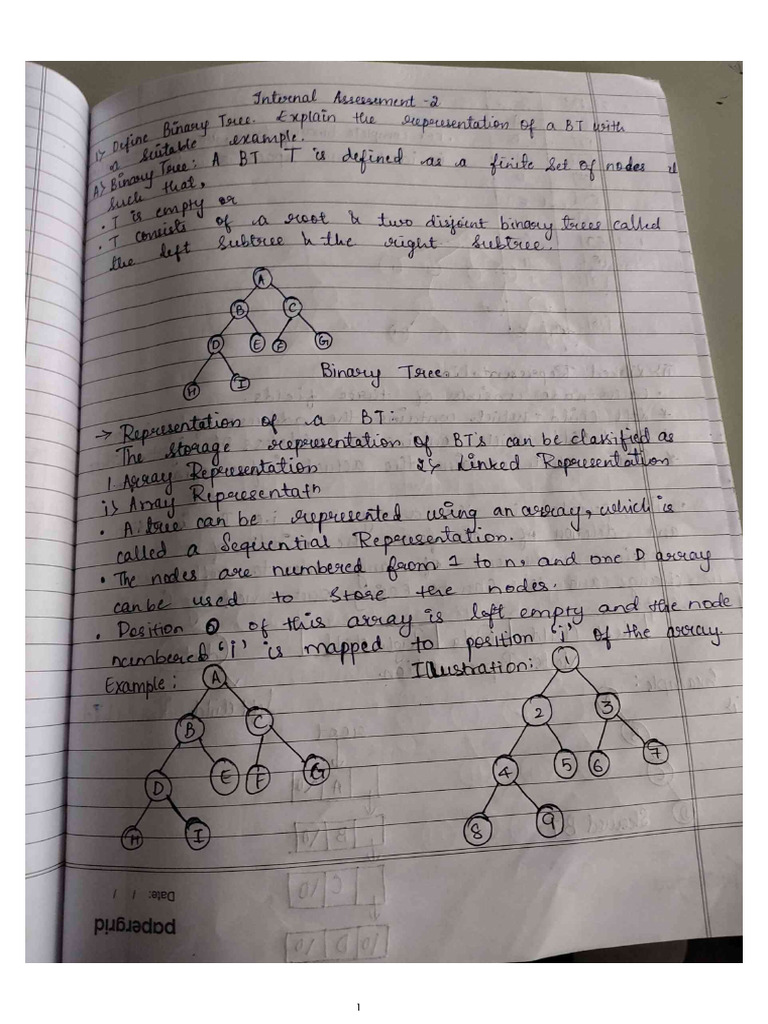 Internal Assessment -2
1) Define Binary Tree. Explain the representation of a BT with
a suitable example.
A) Binary Tree: A BT T is defined as a finite set of nodes
such that,
• T is empty or
• T consists of a root & two disjoint binary trees called
the left subtree & the right subtree.
A
B C
D E F G
H I
Binary Tree.
→ Representation of a BT:
The storage representation of BTs can be classified as
1. Array Representation 2) Linked Representation
i) Array Representatn
• A tree can be represented using an array, which is
called a Sequential Representation.
• The nodes are numbered from 1 to n, and one D array
can be used to store the nodes.
• Position 0 of this array is left empty and the node
numbered 'i' is mapped to position 'i' of the array.
Example: Illustration:
A 1
B C 2 3
D E F G 4 5 6 7
H I 8 9
Date: / /
papergrid
1